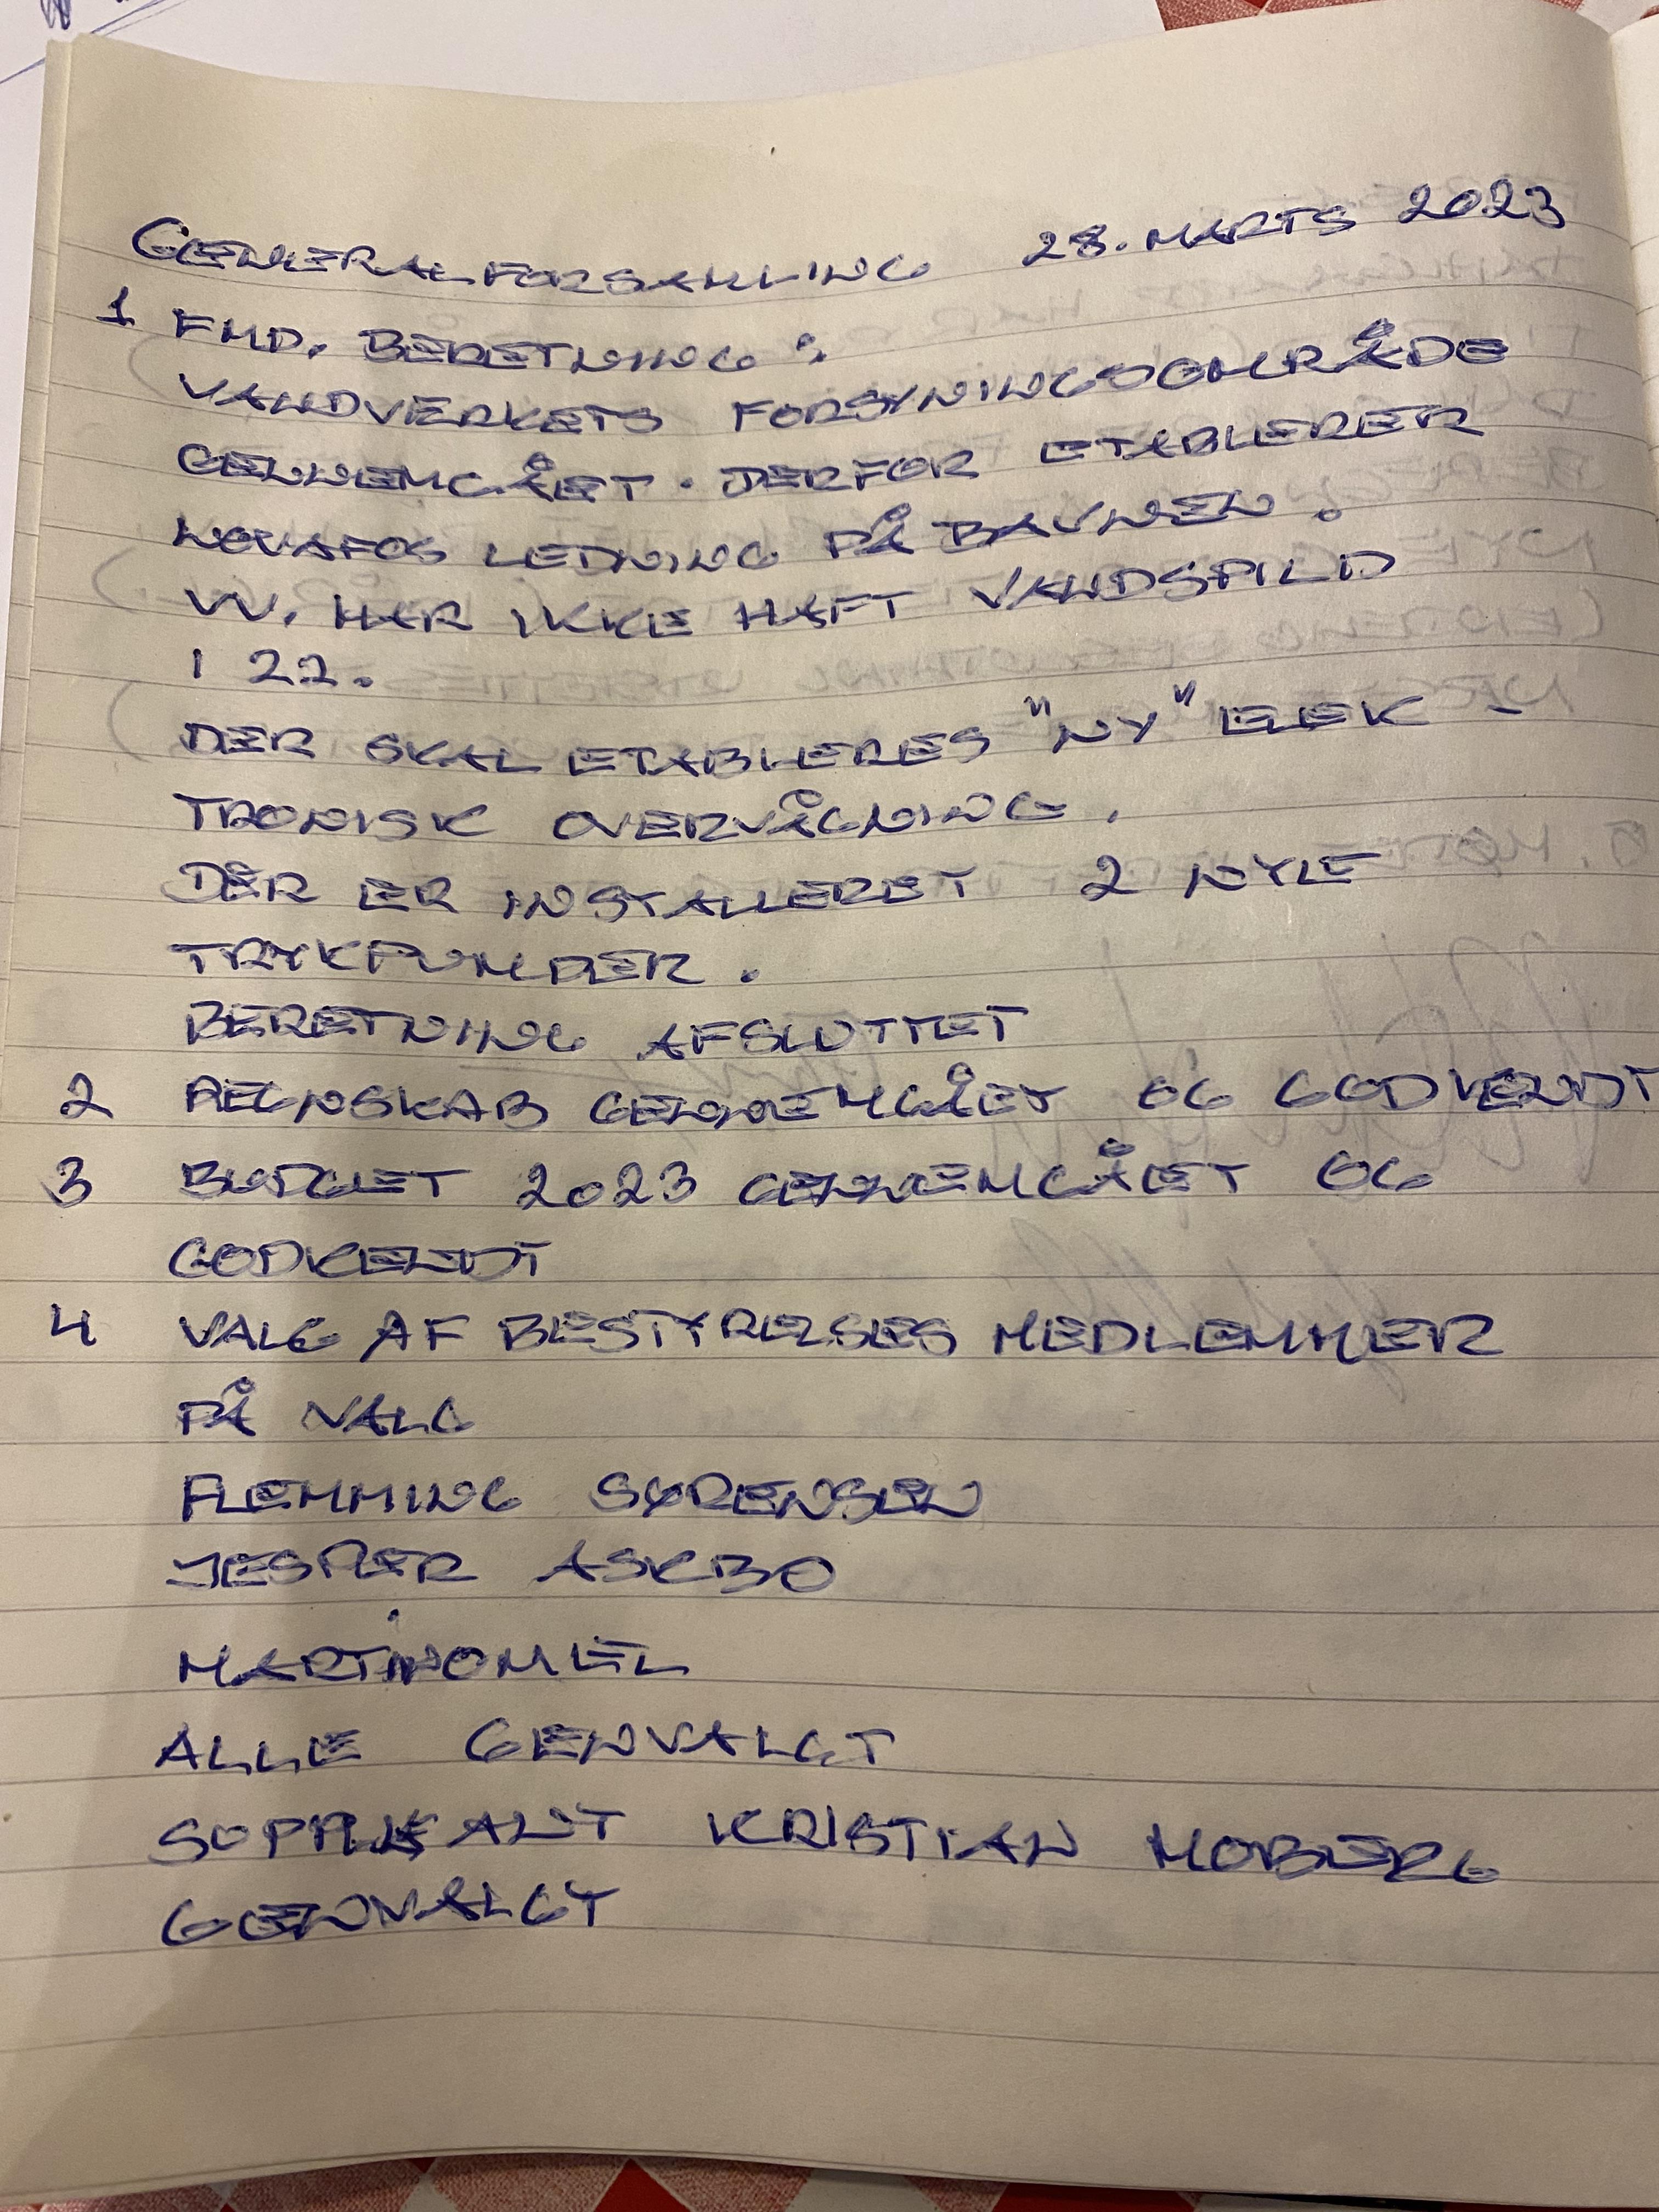 GENERALFORSAMLING 28. MARTS 2023
1 FMD. BERETNING :
VANDVERKETS FORSYNINGSOMRÅDE
GENNEMGÅET. DERFOR ETABLERER
NOVAFOS LEDNING PÅ BAVNEN.
VV. HAR IKKE HAFT VANDSPILD
I 22.
DER SKAL ETABLERES "NY" ELEK-
TRONISK OVERVÅGNING.
DER ER INSTALLERET 2 NYE
TRYKPUMPER.
BERETNING AFSLUTTET
2 REGNSKAB GENNEMGÅET OG GODKENDT
3 BUDGET 2023 GENNEMGÅET OG
GODKENDT
4 VALG AF BESTYRELSES MEDLEMMER
PÅ VALG
FLEMMING SØRENSEN
JESPER ASKBO
MARTIN
ALLE GENVALGT
SUPPLEANT KRISTIAN MOBERG
GENVALGT